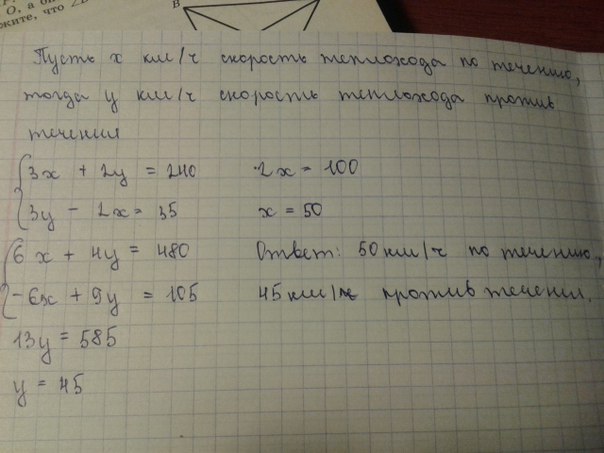 О, а
жите, что ∠
B
Пусть x км/ч скорость теплохода по течению,
тогда y км/ч скорость теплохода против
течения
3x + 2y = 240
3y - 2x = 35
6x + 4y = 480
-6x + 9y = 105
13y = 585
y = 45
2x = 100
x = 50
Ответ: 50 км/ч по течению,
45 км/ч против течения.